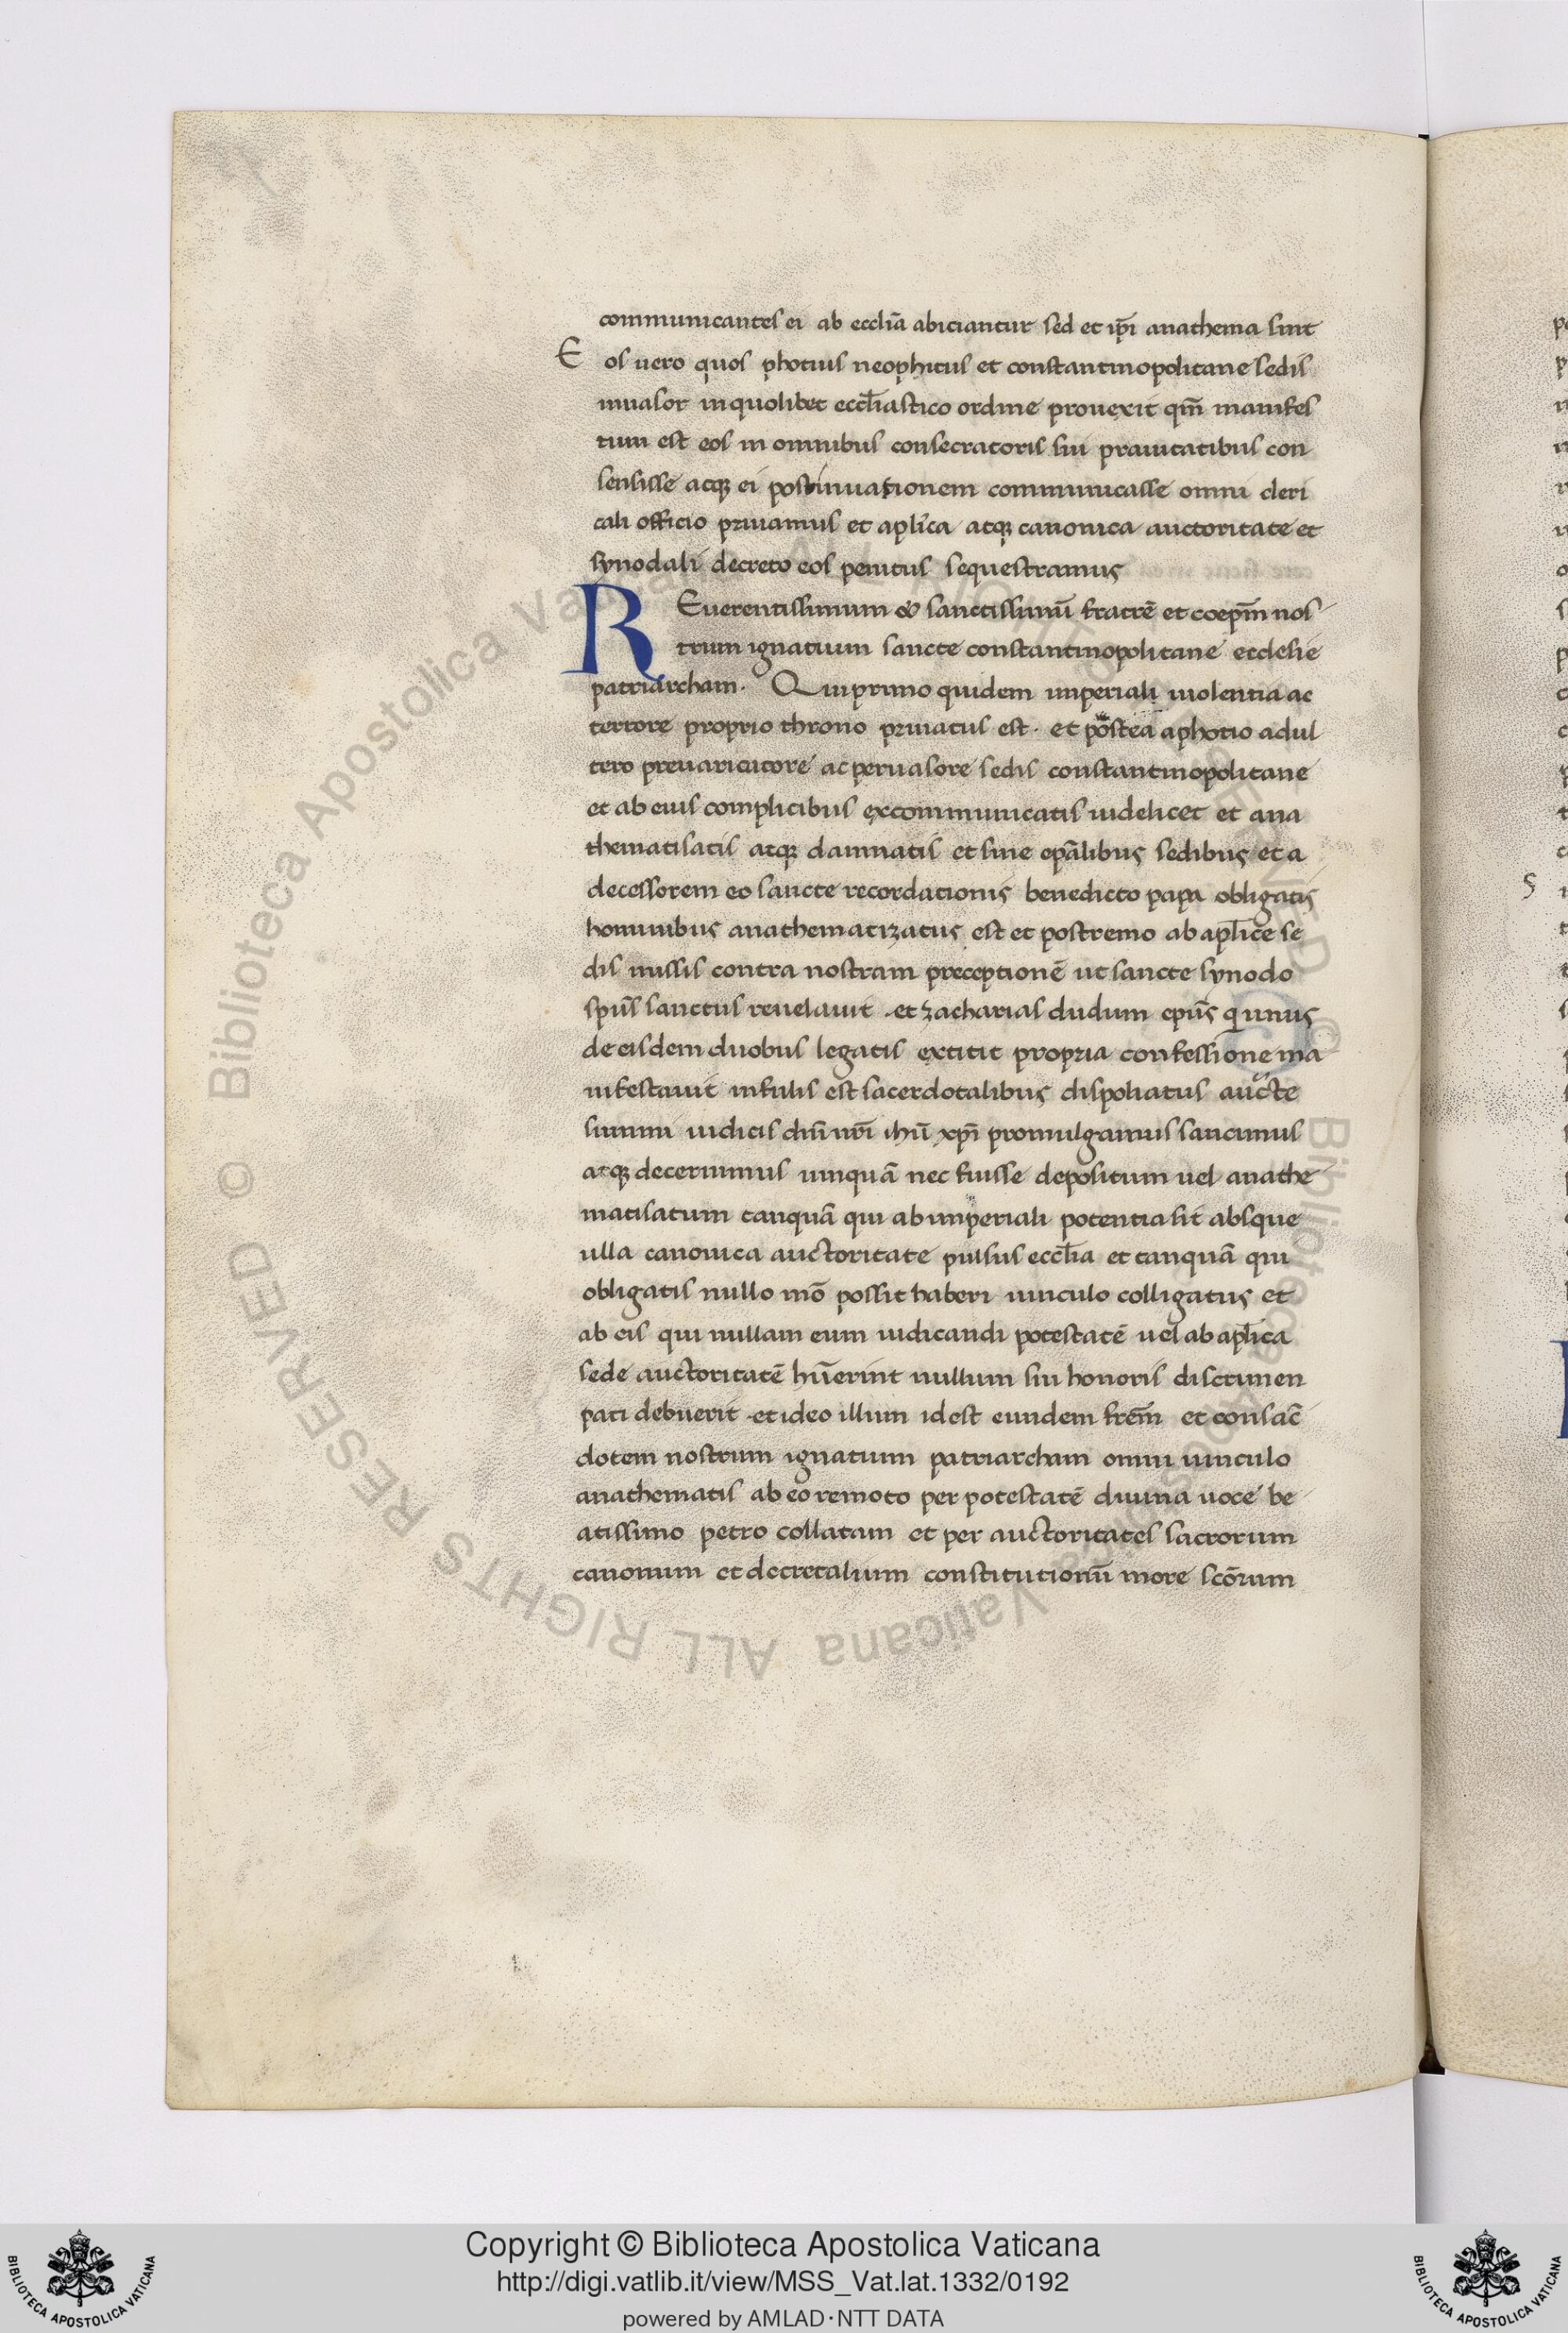 communicantes ei ab ecclīa abiciantur sed et ip̄i anathema sint
Eos uero quos photius neophitus et constantinopolitane sedis
inuasor inquolibet eccl̄iastico ordine prouexit qm̄ manifes
tum est eos in omnibus consecratoris sui prauitatibus con
sensisse atqꝫ ei post inuationem communicasse omni cleri
cali officio priuamus et apl̄ica atqꝫ canonica auctoritate et
synodali decreto eos penitus sequestramus
REuerentissimum & sanctissimū fratrē et coepm̄ nos
trum ignatium sancte constantinopolitane ecclesie
patriarcham. Qui primo quidem imperiali uiolentia ac
terrore proprio throno priuatus est. et postea aphotio adul
tero preuaricatore ac peruasore sedis constantinopolitane
et ab eius complicibus excommunicatis uidelicet et ana
thematisatis atqꝫ damnatis et sine epāl̄ibus sedibus et a
decessorem eo sancte recordationis benedicto papa obligatis
hominibus anathematizatus est et postremo ab apl̄ice se
dis missis contra nostram preceptionē ut sancte synodo
spūs sanctus reuelauit . et zacharias dudum epūs qui unus
de eisdem duobus legatis extitit propria confessione ma
nifestauit infulis est sacerdotalibus dispoliatus aucte
summi iudicis dn̄i nr̄i ihū xp̄i promulgamus sancimus
atqꝫ decernimus unquā nec fuisse depositum uel anathe
matisatum tanquā qui ab imperiali potentia sit absque
ulla canonica auctoritate pulsus eccl̄ia et tanquā qui
obligatis nullo mō possit haberi uinculo colligatus et
ab eis qui nullam eum iudicandi potestatē uel ab apl̄ica
sede auctoritatē hūerint nullum sui honoris discrimen
pati debuerit . et ideo illum idest eundem frēm et consac̄
dotem nostrum ignatium patriarcham omni uinculo
anathematis ab eo remoto per potestatē diuina uoce be
atissimo petro collatam et per auctoritates sacrorum
canonum et decretalium constitutionū more scōrum
5
© Biblioteca Apostolica Vaticana ALL RIGHTS RESERVED © Biblioteca Apostolica Vaticana ALL RIGHTS RESERVED
Copyright © Biblioteca Apostolica Vaticana
http://digi.vatlib.it/view/MSS_Vat.lat.1332/0192
powered by AMLAD·NTT DATA
BIBLIOTECA APOSTOLICA VATICANA
BIBLIOTECA APOSTOLICA VATICANA